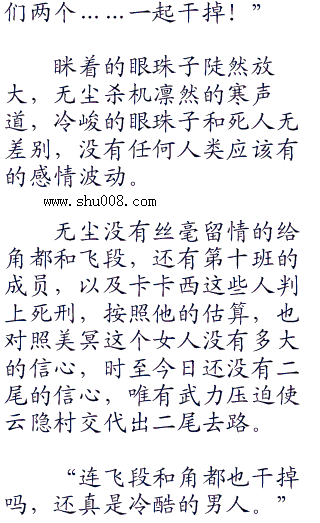 们两个……一起干掉！”
眯着的眼珠子陡然放
大，无尘杀机凛然的寒声
道，冷峻的眼珠子和死人无
差别，没有任何人类应该有
的感情波动。
www.shu008.com
无尘没有丝毫留情的给
角都和飞段，还有第十班的
成员，以及卡卡西这些人判
上死刑，按照他的估算，也
对照美冥这个女人没有多大
的信心，时至今日还没有二
尾的信心，唯有武力压迫使
云隐村交代出二尾去路。
“连飞段和角都也干掉
吗，还真是冷酷的男人。”